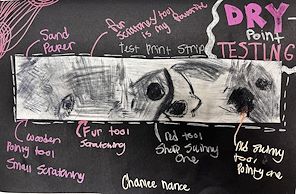 DRY
Point
TESTING
Sand
Paper
Fur
tool
is my favorite
Test Print Strip
wooden
Pointy tool
Small Scratching
Fur tool
Scratching
tool
Skinny
one
Skinny
tool
Pointy one
nance